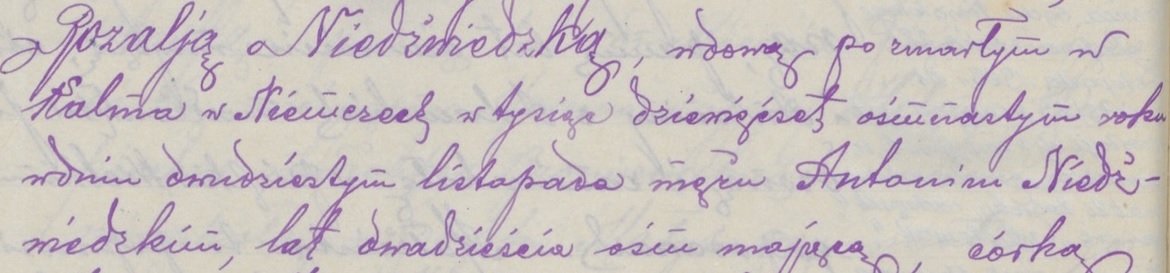 Rozalją Niedźwiedzką, wdową po zmarłym w
Kalma w Niemczech w tysiąc dziewięćset ośmnastym roku
w dniu dwudziestym listopada mężu Antonim Niedź-
wiedzkim, lat dwadzieścia ośm mającą, córką